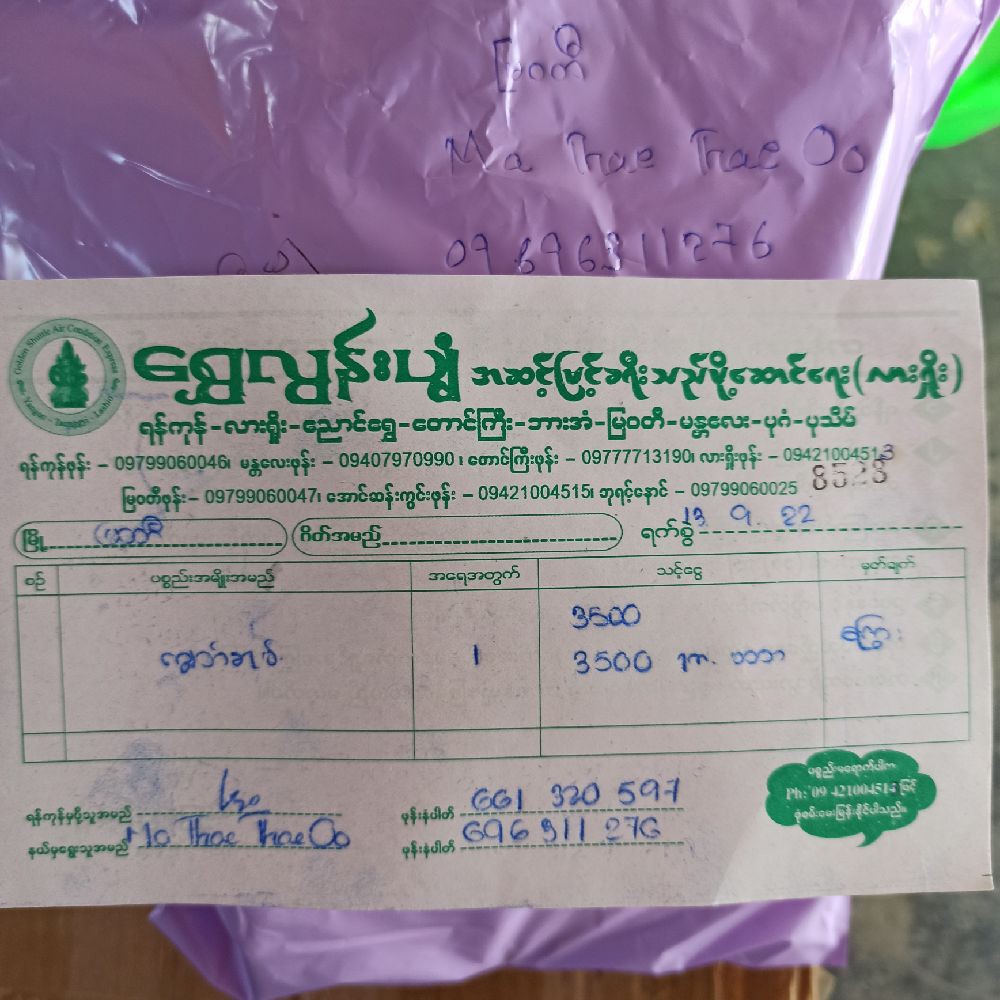 မြဝတီ
Ma Thae Thae Oo
09 696311276
Golden Shuttle Air Condition Express
ရွှေလွန်းပျံ အဆင့်မြင့်ခရီးသည်ပို့ဆောင်ရေး(လားရှိုး)
ရန်ကုန်-လားရှိုး-ညောင်ရွှေ-တောင်ကြီး-ဘားအံ-မြဝတီ-မန္တလေး-ပုဂံ-ပုသိမ်
ရန်ကုန်ဖုန်း - 09799060046၊ မန္တလေးဖုန်း - 09407970990 ၊ တောင်ကြီးဖုန်း - 09777713190၊ လားရှိုးဖုန်း - 09421004513
မြဝတီဖုန်း - 09799060047၊ အောင်ဆန်းကွင်းဖုန်း - 09421004515၊ ဘုရင့်နောင် - 09799060025 8528
မြို့ မြဝတီ ဂိတ်အမည် ရက်စွဲ 13 9. 22
စဉ် ပစ္စည်းအမျိုးအမည် အရေအတွက် သင့်ငွေ မှတ်ချက်
3500
1 3500 ကြွေး
ရန်ကုန်မှပို့သူအမည် ဖုန်းနံပါတ် 661 320 597
နယ်မှရွေးသူအမည် Ma Thae Thae Oo ဖုန်းနံပါတ် 696 311 276
ပစ္စည်းမရောက်ပါက
Ph: 09 421004515 ဖြင့်
စုံစမ်းမေးမြန်းနိုင်ပါသည်။